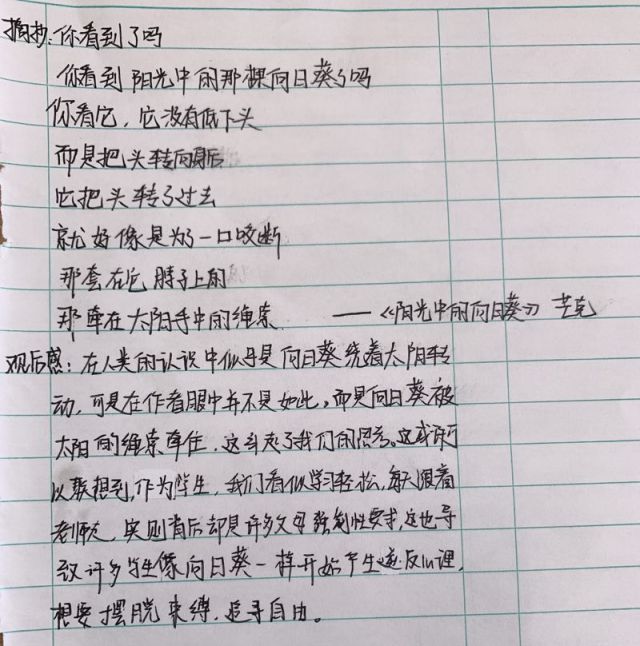 摘抄：你看到了吗
你看到阳光中的那棵向日葵了吗
你看它，它没有低下头
而是把头转向身后
它把头转了过去
就好像是为了一口咬断
那套在它脖子上的
那牵在太阳手中的绳索 ——《阳光中的向日葵》芒克
观后感：在人类的认识中似乎是向日葵绕着太阳转
动，可是在作者眼中并不是如此，而是向日葵被
太阳的绳索牵住，这引来了我们的思考。这或许可
以联想到，作为学生，我们看似学习轻松，每天跟着
老师走，实则背后却是许多父母强制性要求，这也导
致许多学生像向日葵一样开始产生逆反心理，
想要摆脱束缚，追寻自由。